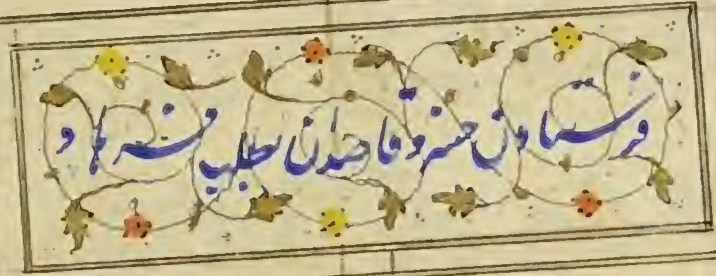 فرستادن خسرو قاصدان بطلب فرهاد